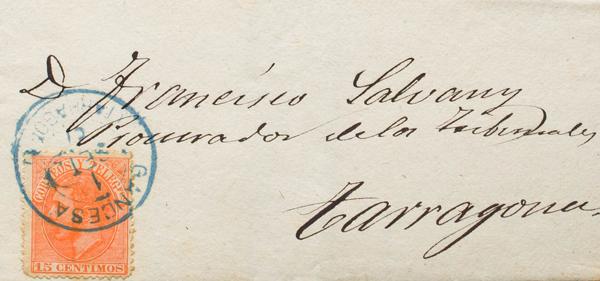 D. Francisco Salvany
Procurador de los Tribunales
Tarragona
GANCESA
CORREOS Y TELEGFS
15 CENTIMOS